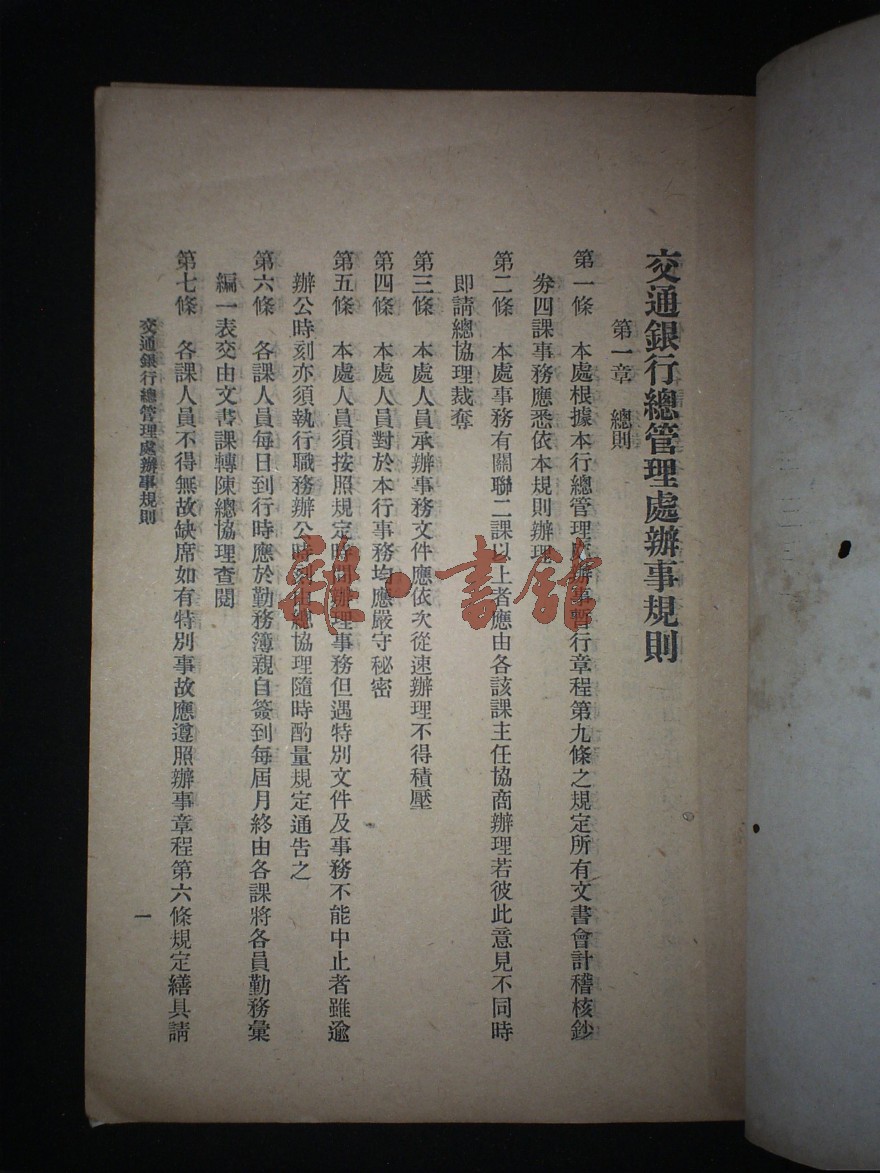 交通銀行總管理處辦事規則
第一章　總則
第一條　本處根據本行總管理處辦事暫行章程第九條之規定所有文書會計稽核鈔
券四課事務應悉依本規則辦理
第二條　本處事務有關聯二課以上者應由各該課主任協商辦理若彼此意見不同時
即請總協理裁奪
第三條　本處人員承辦事務文件應依次從速辦理不得積壓
第四條　本處人員對於本行事務均應嚴守秘密
第五條　本處人員須按照規定時間辦理事務但遇特別文件及事務不能中止者雖逾
辦公時刻亦須執行職務辦公時刻由總協理隨時酌量規定通告之
第六條　各課人員每日到行時應於勤務簿親自簽到每屆月終由各課將各員勤務彙
編一表交由文書課轉陳總協理查閱
第七條　各課人員不得無故缺席如有特別事故應遵照辦事章程第六條規定繕具請
交通銀行總管理處辦事規則
一
雜·書館